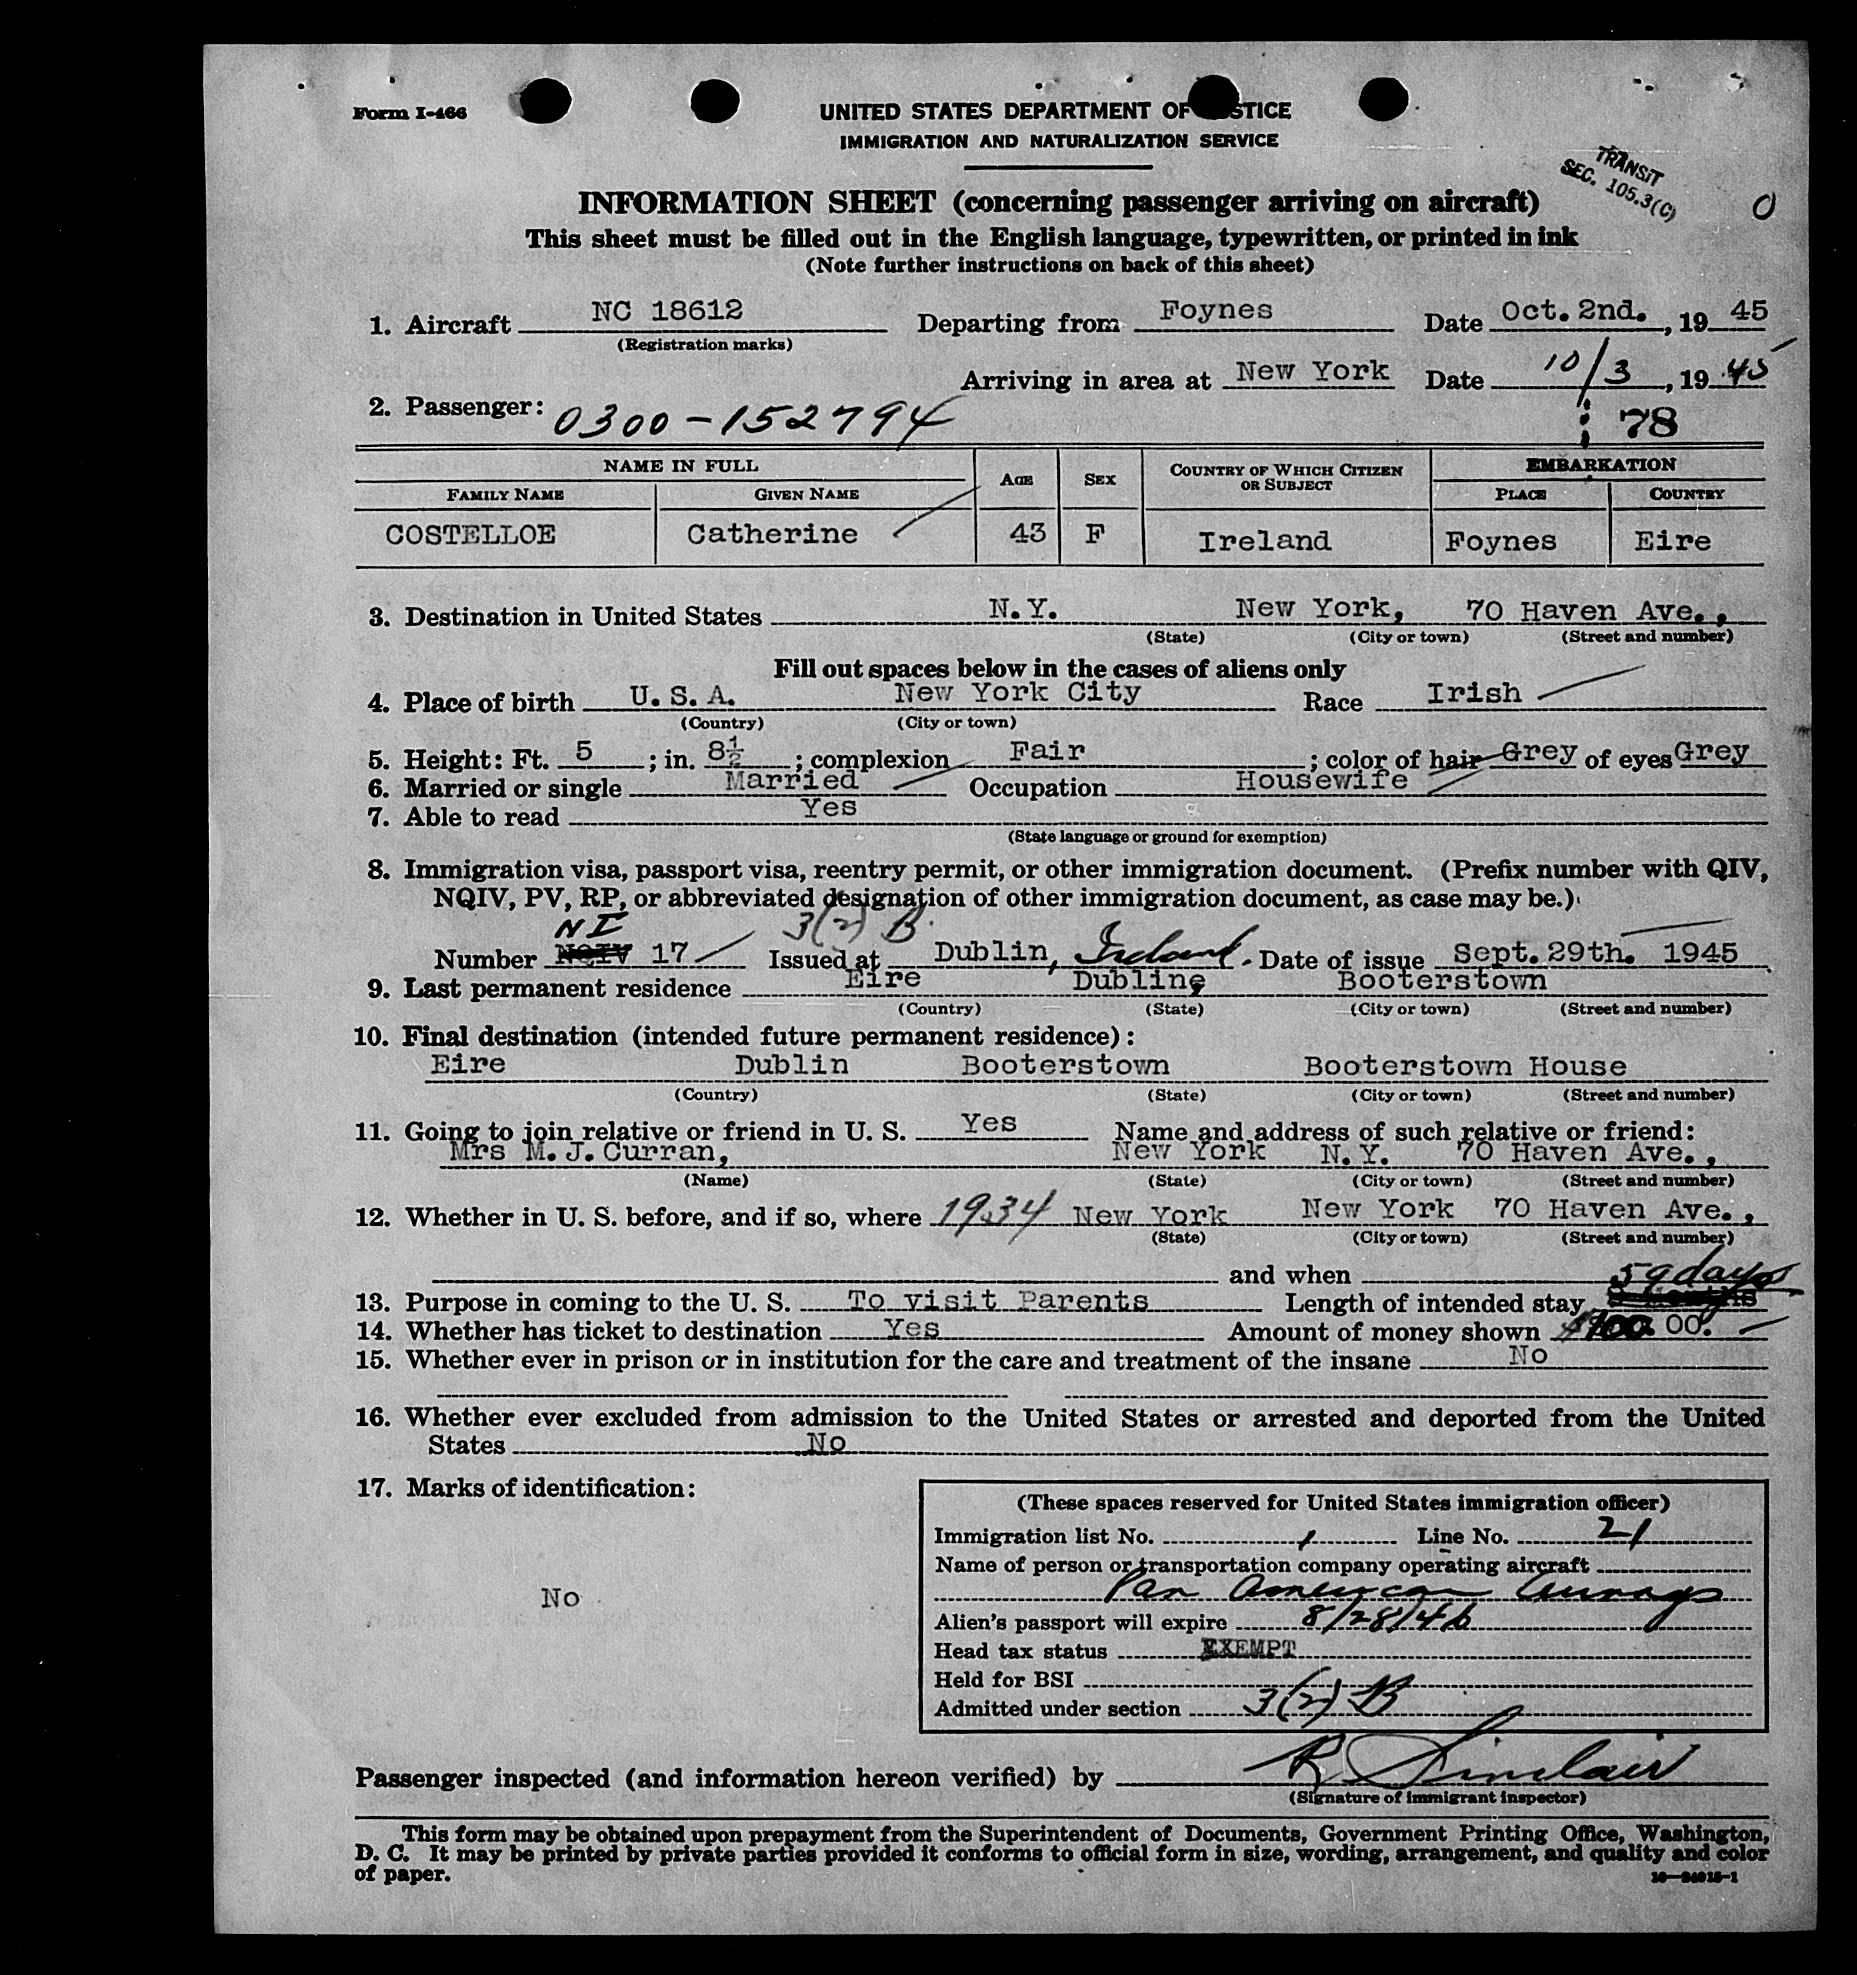 Form I-466
UNITED STATES DEPARTMENT OF JUSTICE
IMMIGRATION AND NATURALIZATION SERVICE
TRANSIT
SEC. 105.3(C)
0
INFORMATION SHEET (concerning passenger arriving on aircraft)
This sheet must be filled out in the English language, typewritten, or printed in ink
(Note further instructions on back of this sheet)
1. Aircraft NC 18612 Departing from Foynes Date Oct. 2nd. , 19 45
(Registration marks)
Arriving in area at New York Date 10/3 , 19 45
2. Passenger: 0300-152794
78
NAME IN FULL AGE SEX COUNTRY OF WHICH CITIZEN OR SUBJECT EMBARKATION
FAMILY NAME GIVEN NAME PLACE COUNTRY
COSTELLOE Catherine 43 F Ireland Foynes Eire
3. Destination in United States N.Y. New York, 70 Haven Ave.,
(State) (City or town) (Street and number)
Fill out spaces below in the cases of aliens only
4. Place of birth U.S.A. New York City Race Irish
(Country) (City or town)
5. Height: Ft. 5 ; in. 8½ ; complexion Fair ; color of hair Grey of eyes Grey
6. Married or single Married Occupation Housewife
7. Able to read Yes
(State language or ground for exemption)
8. Immigration visa, passport visa, reentry permit, or other immigration document. (Prefix number with QIV,
NQIV, PV, RP, or abbreviated designation of other immigration document, as case may be.)
NI 3(2) B
Number NQIV 17 Issued at Dublin, Ireland. Date of issue Sept. 29th. 1945
9. Last permanent residence Eire Dublin, Booterstown
(Country) (State) (City or town) (Street and number)
10. Final destination (intended future permanent residence):
Eire Dublin Booterstown Booterstown House
(Country) (State) (City or town) (Street and number)
11. Going to join relative or friend in U. S. Yes Name and address of such relative or friend:
Mrs M.J. Curran, New York N.Y. 70 Haven Ave.,
(Name) (State) (City or town) (Street and number)
12. Whether in U. S. before, and if so, where 1934 New York New York 70 Haven Ave.,
(State) (City or town) (Street and number)
and when
59 days
13. Purpose in coming to the U. S. To visit Parents Length of intended stay
14. Whether has ticket to destination Yes Amount of money shown $100.00.
15. Whether ever in prison or in institution for the care and treatment of the insane No
16. Whether ever excluded from admission to the United States or arrested and deported from the United
States No
17. Marks of identification:
No
(These spaces reserved for United States immigration officer)
Immigration list No. 1 Line No. 21
Name of person or transportation company operating aircraft
Pan American Airways
Alien's passport will expire 8/28/46
Head tax status EXEMPT
Held for BSI
Admitted under section 3(2) B
Passenger inspected (and information hereon verified) by R Sinclair
(Signature of immigrant inspector)
This form may be obtained upon prepayment from the Superintendent of Documents, Government Printing Office, Washington,
D. C. It may be printed by private parties provided it conforms to official form in size, wording, arrangement, and quality and color
of paper.